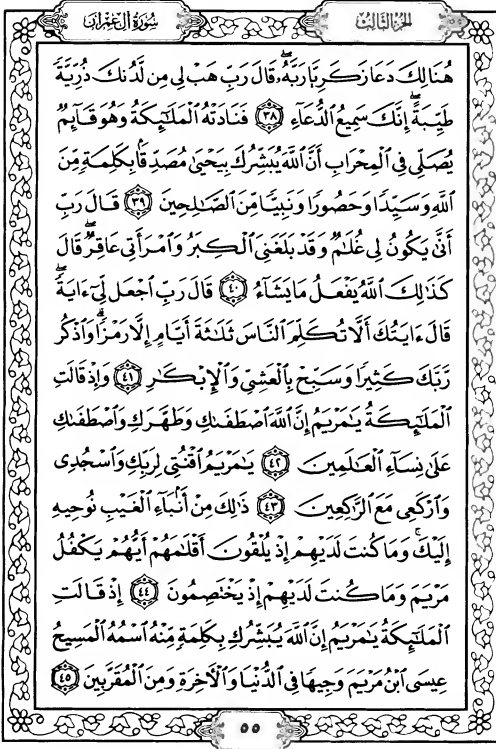 سُورَةُ آلِ عِمْرَان
الجُزْءُ الثَّالِثُ
هُنَالِكَ دَعَا زَكَرِيَّا رَبَّهُۥۖ قَالَ رَبِّ هَبْ لِى مِن لَّدُنكَ ذُرِّيَّةً
طَيِّبَةًۖ إِنَّكَ سَمِيعُ الدُّعَآءِ ٣٨ فَنَادَتْهُ الْمَلَٰٓئِكَةُ وَهُوَ قَآئِمٌ
يُصَلِّى فِى الْمِحْرَابِ أَنَّ اللَّهَ يُبَشِّرُكَ بِيَحْيَىٰ مُصَدِّقًۢا بِكَلِمَةٍ مِّنَ
اللَّهِ وَسَيِّدًا وَحَصُورًا وَنَبِيًّا مِّنَ الصَّٰلِحِينَ ٣٩ قَالَ رَبِّ
أَنَّىٰ يَكُونُ لِى غُلَٰمٌ وَقَدْ بَلَغَنِىَ الْكِبَرُ وَامْرَأَتِى عَاقِرٌۖ قَالَ
كَذَٰلِكَ اللَّهُ يَفْعَلُ مَا يَشَآءُ ٤٠ قَالَ رَبِّ اجْعَل لِّىٓ ءَايَةًۖ
قَالَ ءَايَتُكَ أَلَّا تُكَلِّمَ النَّاسَ ثَلَٰثَةَ أَيَّامٍ إِلَّا رَمْزًاۗ وَاذْكُر
رَّبَّكَ كَثِيرًا وَسَبِّحْ بِالْعَشِىِّ وَالْإِبْكَٰرِ ٤١ وَإِذْ قَالَتِ
الْمَلَٰٓئِكَةُ يَٰمَرْيَمُ إِنَّ اللَّهَ اصْطَفَىٰكِ وَطَهَّرَكِ وَاصْطَفَىٰكِ
عَلَىٰ نِسَآءِ الْعَٰلَمِينَ ٤٢ يَٰمَرْيَمُ اقْنُتِى لِرَبِّكِ وَاسْجُدِى
وَارْكَعِى مَعَ الرَّٰكِعِينَ ٤٣ ذَٰلِكَ مِنْ أَنۢبَآءِ الْغَيْبِ نُوحِيهِ
إِلَيْكَۚ وَمَا كُنتَ لَدَيْهِمْ إِذْ يُلْقُونَ أَقْلَٰمَهُمْ أَيُّهُمْ يَكْفُلُ
مَرْيَمَ وَمَا كُنتَ لَدَيْهِمْ إِذْ يَخْتَصِمُونَ ٤٤ إِذْ قَالَتِ
الْمَلَٰٓئِكَةُ يَٰمَرْيَمُ إِنَّ اللَّهَ يُبَشِّرُكِ بِكَلِمَةٍ مِّنْهُ اسْمُهُ الْمَسِيحُ
عِيسَى ابْنُ مَرْيَمَ وَجِيهًا فِى الدُّنْيَا وَالْءَاخِرَةِ وَمِنَ الْمُقَرَّبِينَ ٤٥
٥٥